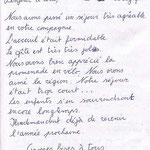 Nous avons passé un séjour très agréable
en votre compagnie
L'accueil était formidable
Le gîte est très très joli
Nous avons bien apprécié la
promenade en vélo. Nous avons
aimé la région. Notre séjour
était trop court...
Les enfants s'en souviendront
encore longtemps.
déjà de revenir
l'année prochaine
Grosses bises à tous